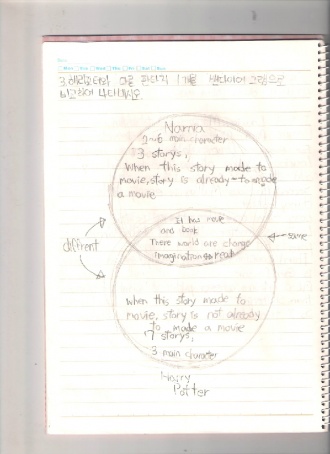 3. 해리포터와 다른 판타지 1개를 벤다이어그램으로
비교하여 나타내시오
Narnia
2~6 main character
3 storys,
When this story made to
movie, story is already to made
a movie
It has movie
and book
There world are change
imagination real
different
same
when this story made to
movie, story is not already
to made a movie
7 storys,
3 main character
Harry
Potter